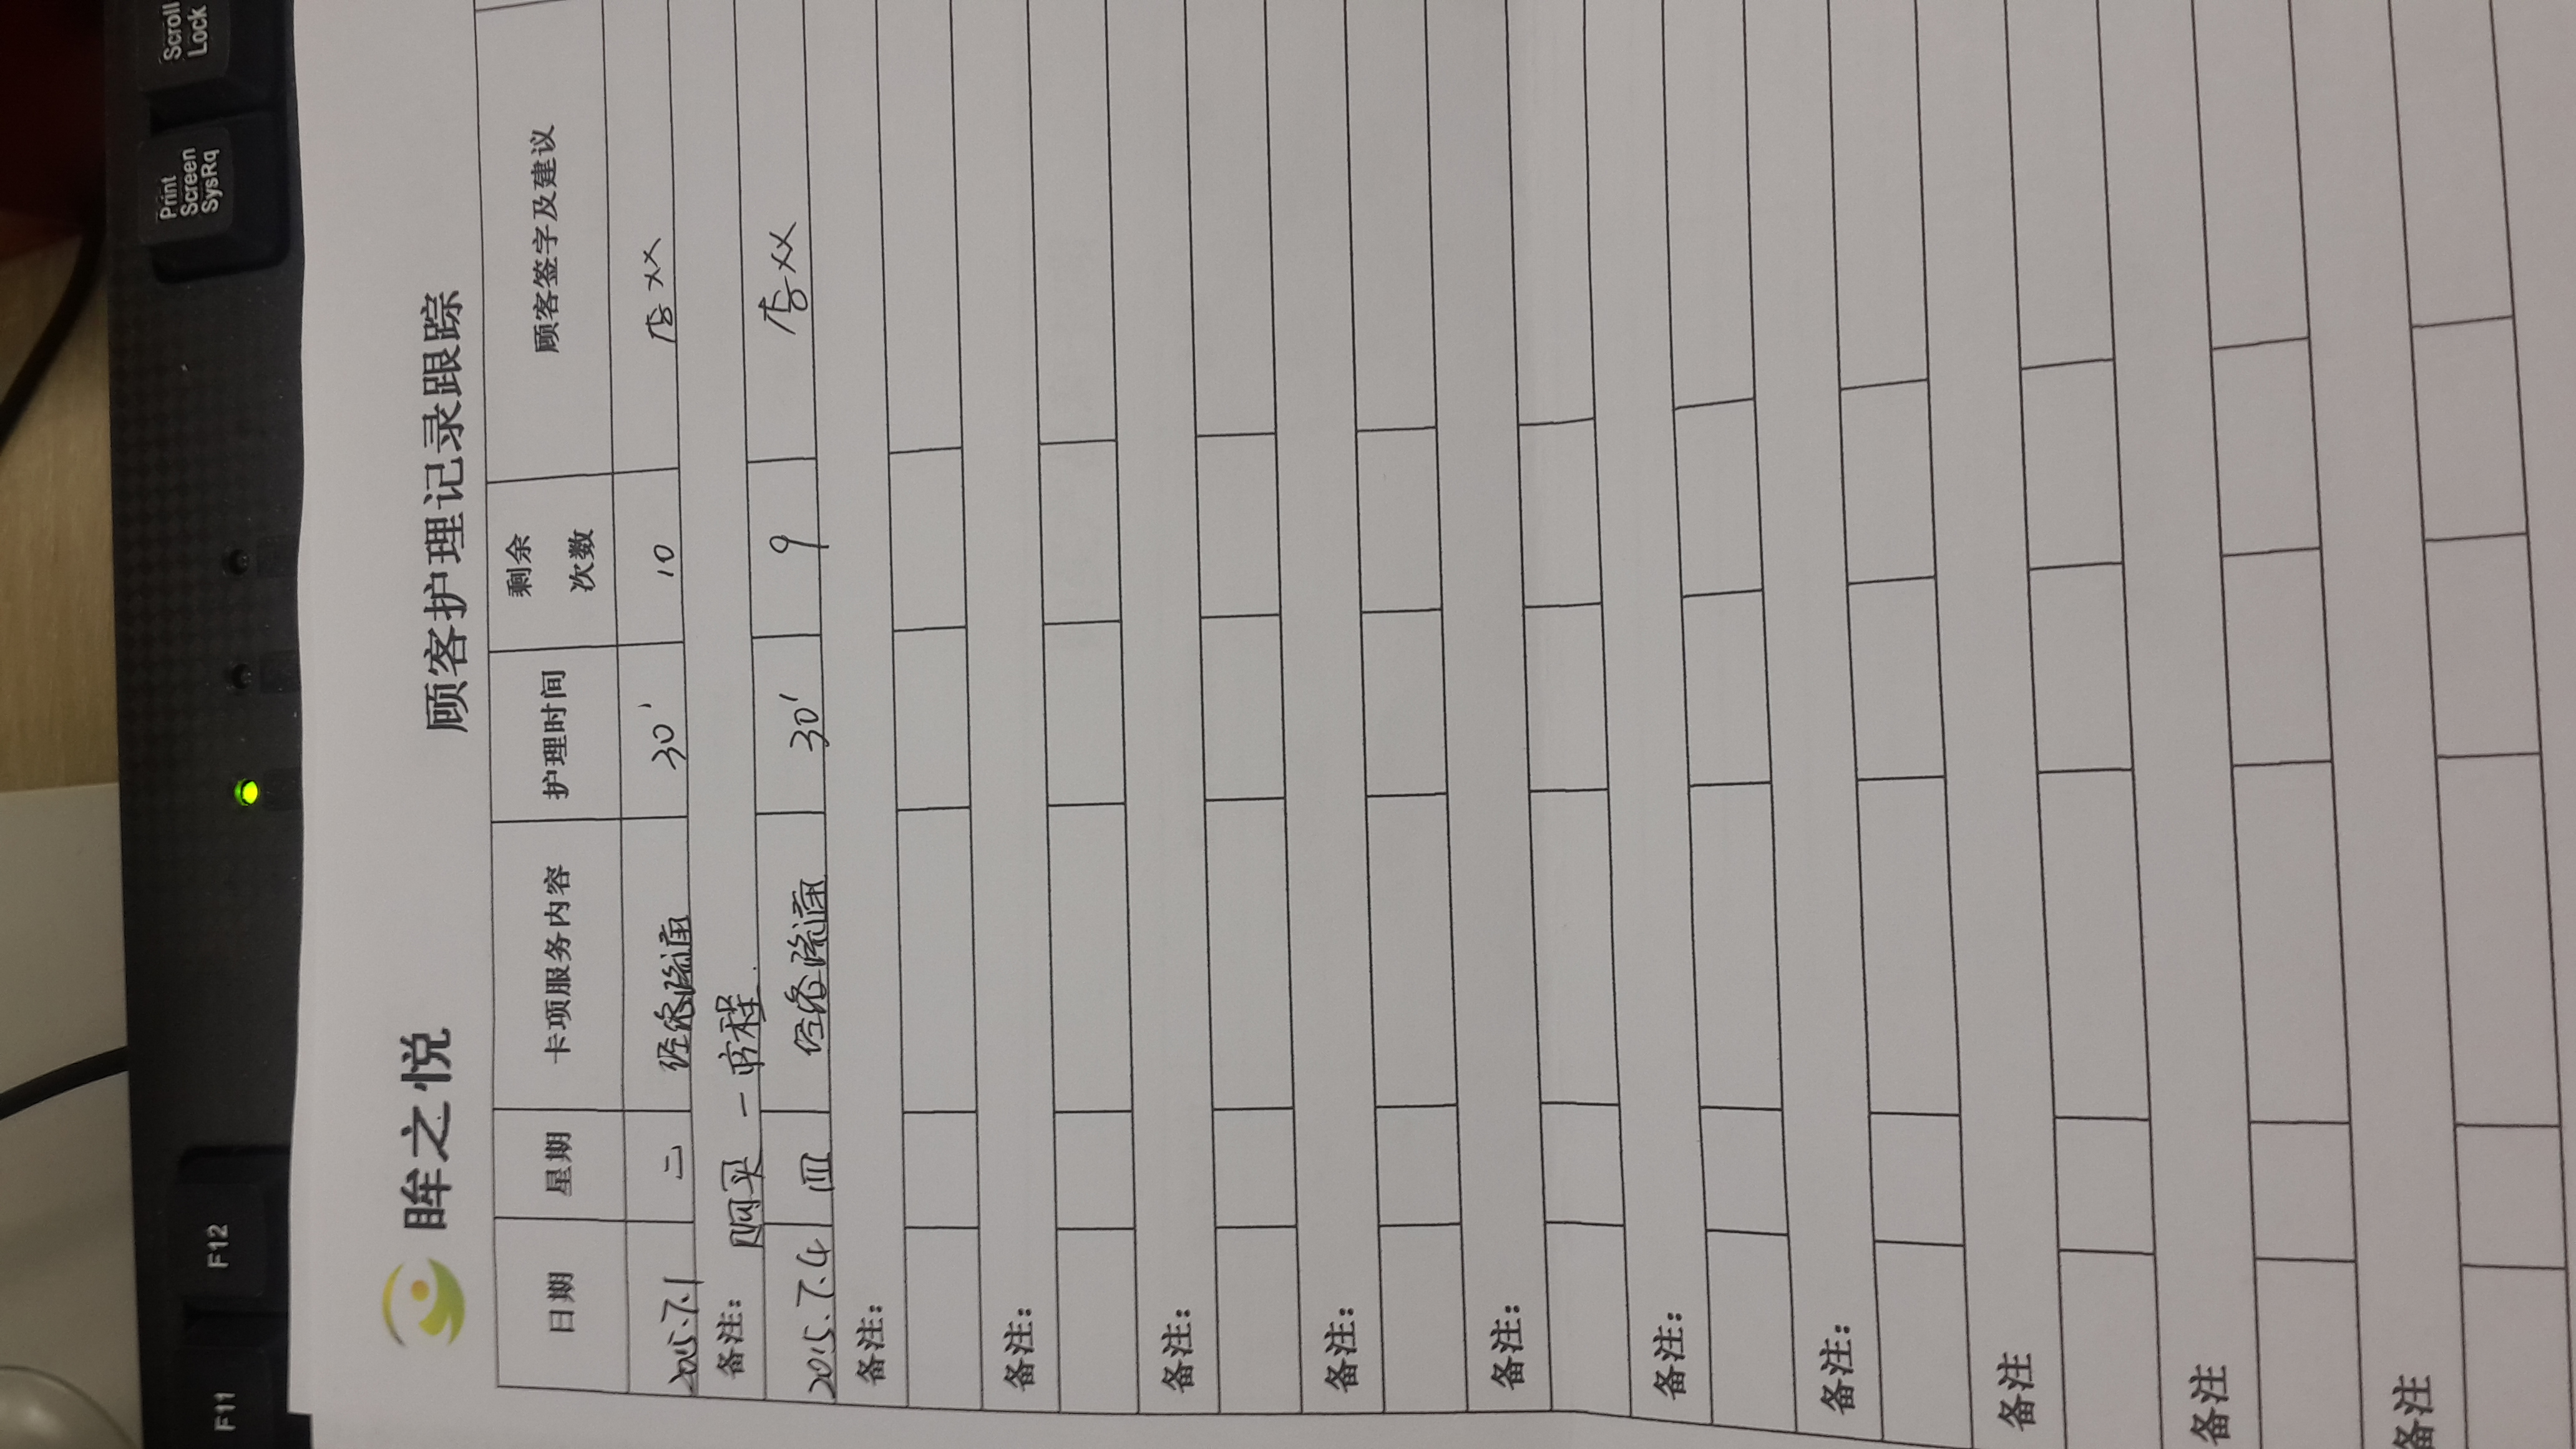 F11 F12 Print Screen SysRq Scroll Lock
眸之悦 顾客护理记录跟踪
日期 星期 卡项服务内容 护理时间 剩余次数 顾客签字及建议
2015.7.1 二 经络疏通 30' 10 李xx
备注: 购买一疗程.
2015.7.4 四 经络疏通 30' 9 李xx
备注:
备注:
备注:
备注:
备注:
备注:
备注:
备注
备注
备注